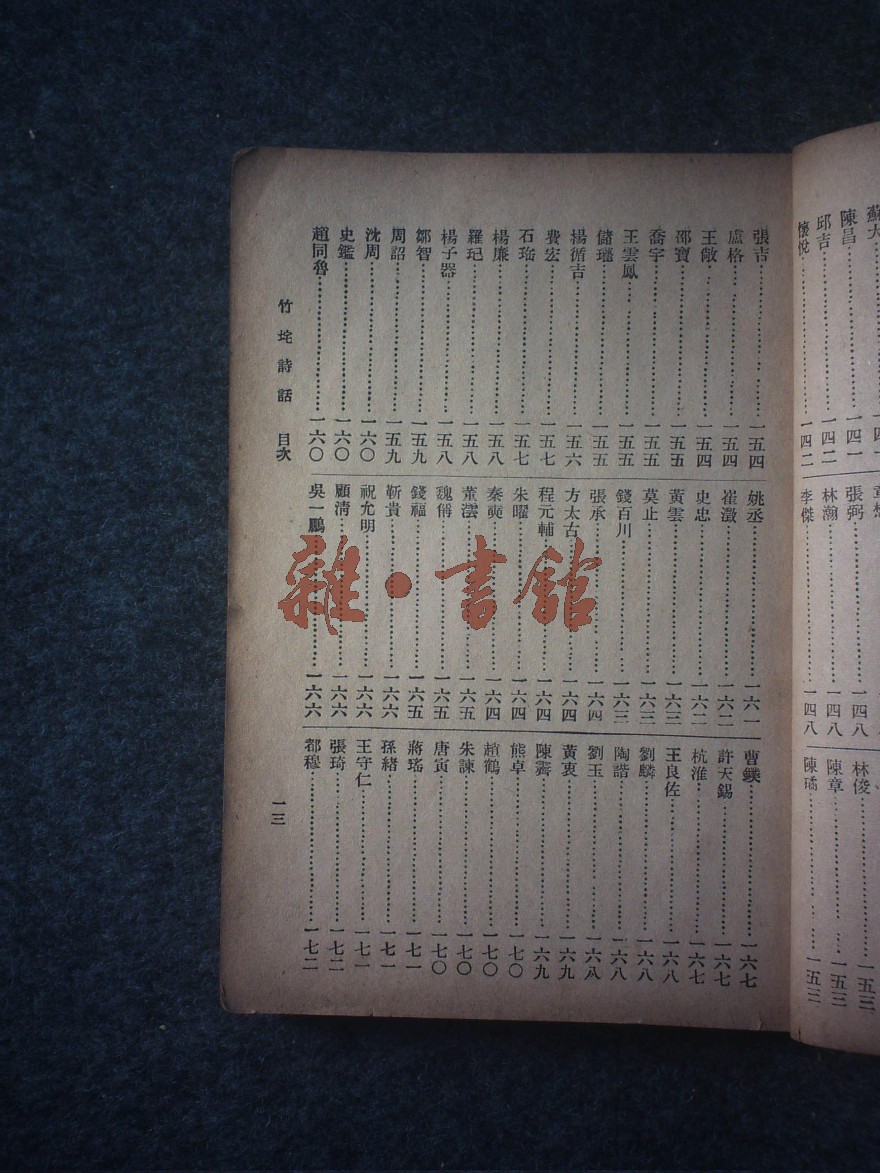 蘇大
陳昌……一四一
邱吉……一四二
懷悅……一四二
張弼……一四八
林瀚……一四八
李傑……一四八
林俊……一五三
陳章……一五三
陳璚……一五三
張吉……一五四
盧格……一五四
王敞……一五四
邵寶……一五五
喬宇……一五五
王雲鳳……一五五
儲巏……一五五
楊循吉……一五六
費宏……一五七
石珤……一五七
楊廉……一五八
羅玘……一五八
楊子器……一五八
鄒智……一五九
周詔……一五九
沈周……一六〇
史鑑……一六〇
趙同魯……一六〇
姚丞……一六一
崔澂……一六二
史忠……一六二
黃雲……一六三
莫止……一六三
錢百川……一六三
張承……一六四
方太古……一六四
程元輔……一六四
朱曜……一六四
秦奭……一六四
董澐……一六五
魏偁……一六五
錢福……一六五
靳貴……一六六
祝允明……一六六
顧清……一六六
吳一鵬……一六六
曹鏷……一六七
許天錫……一六七
杭淮……一六七
王良佐……一六八
劉麟……一六八
陶諧……一六八
劉玉……一六八
黃衷……一六九
陳霽……一六九
熊卓……一七〇
趙鶴……一七〇
朱諫……一七〇
唐寅……一七〇
蔣瑤……一七一
孫緒……一七一
王守仁……一七一
張琦……一七二
都穆……一七二
竹垞詩話 目次
一三
雜·書館